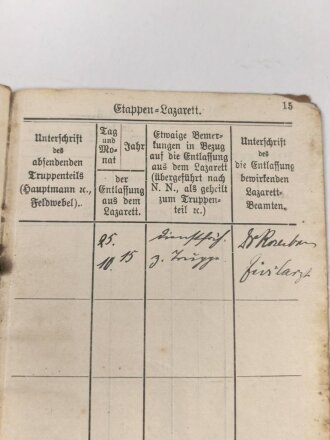 Etappen-Lazarett. 15
Unterschrift
des
absendenden
Truppenteils
(Hauptmann ꝛc.,
Feldwebel)..
Tag
und
Mo-
nat
Jahr
der
Entlassung
aus dem
Lazarett.
Etwaige Bemer-
kungen in Bezug
auf die Entlassung
aus dem Lazarett
(übergeführt nach
N. N., als geheilt
zum Truppen-
teil ꝛc.)
Unterschrift
des
die Entlassung
bewirkenden
Lazarett-
Beamten.
25.
10. 15
dienstfäh.
z. Truppe
Dr
Zivilarzt